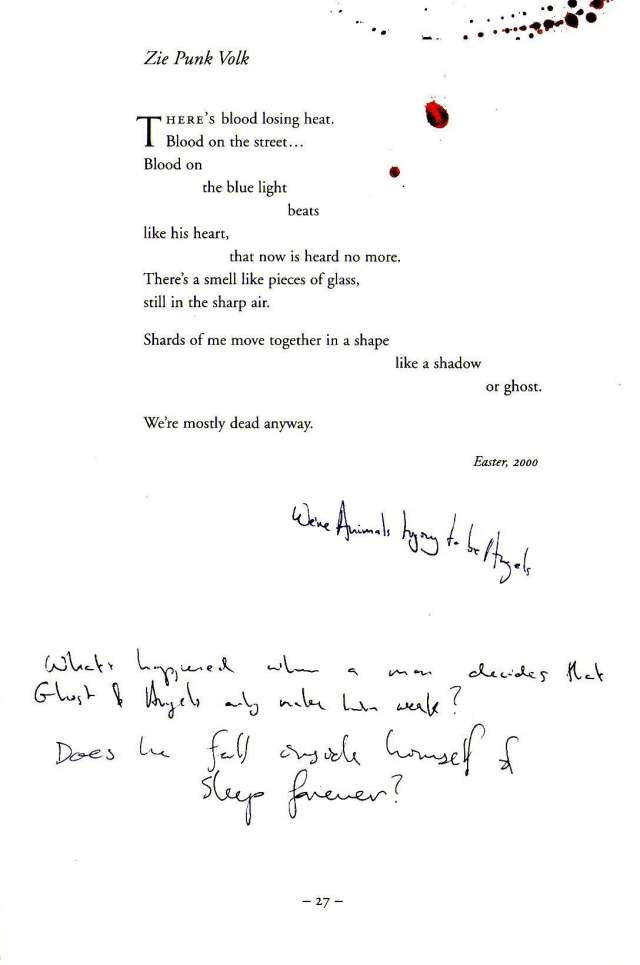 Zie Punk Volk
THERE's blood losing heat.
Blood on the street…
Blood on
the blue light
beats
like his heart,
that now is heard no more.
There's a smell like pieces of glass,
still in the sharp air.
Shards of me move together in a shape
like a shadow
or ghost.
We're mostly dead anyway.
Easter, 2000
We're Animals trying to be Angels
What's happened when a man decides that
Ghost & Angels only make him weak?
Does he fall inside himself &
Sleep forever?
– 27 –